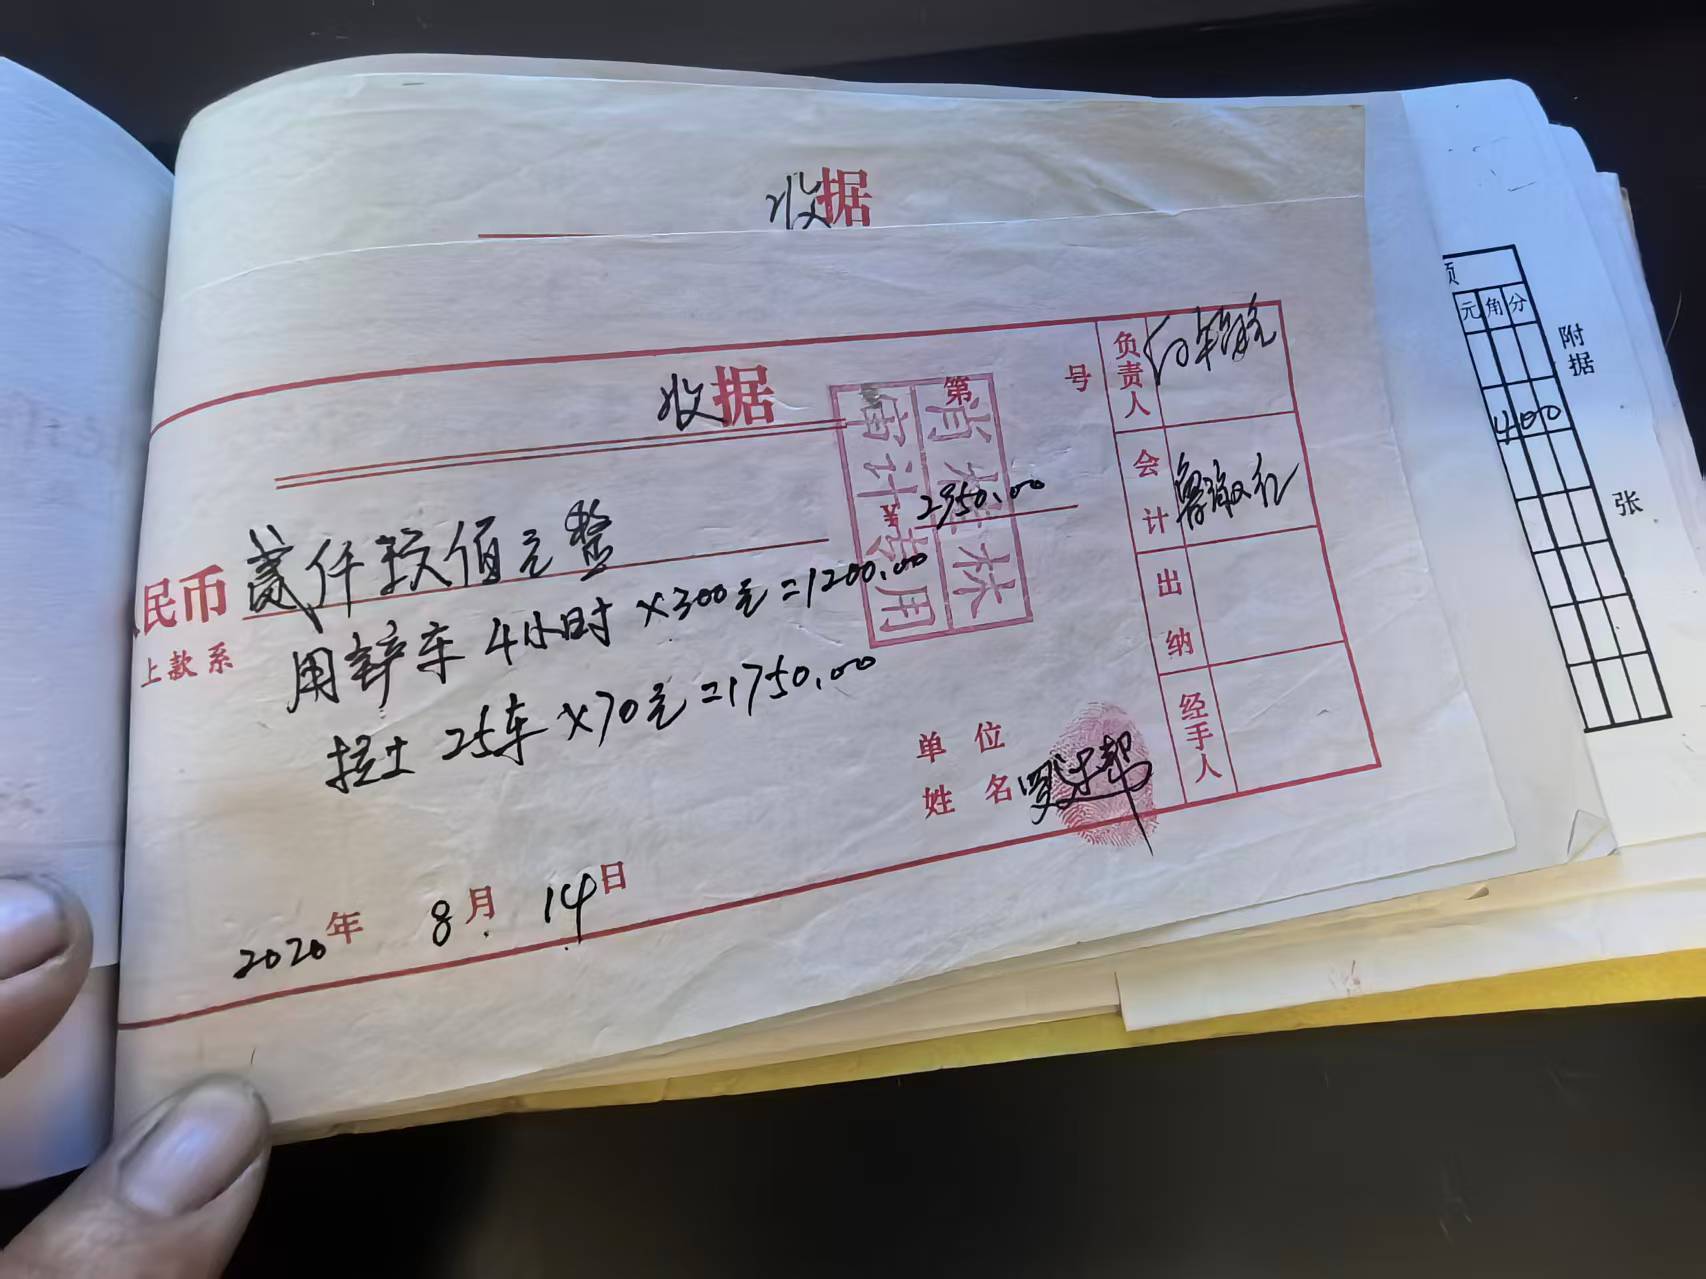 收据
收据
第 号
人民币 贰仟玖佰元整 ¥ 2950.00
上款系 用 车 4小时 ×300元=1200.00
拉土 25车×70元=1750.00
审计专用
林
负责人
会计
出纳
经手人
单位
姓名 罗 帮
2020年 8月 14日
元角分
400
附据
张